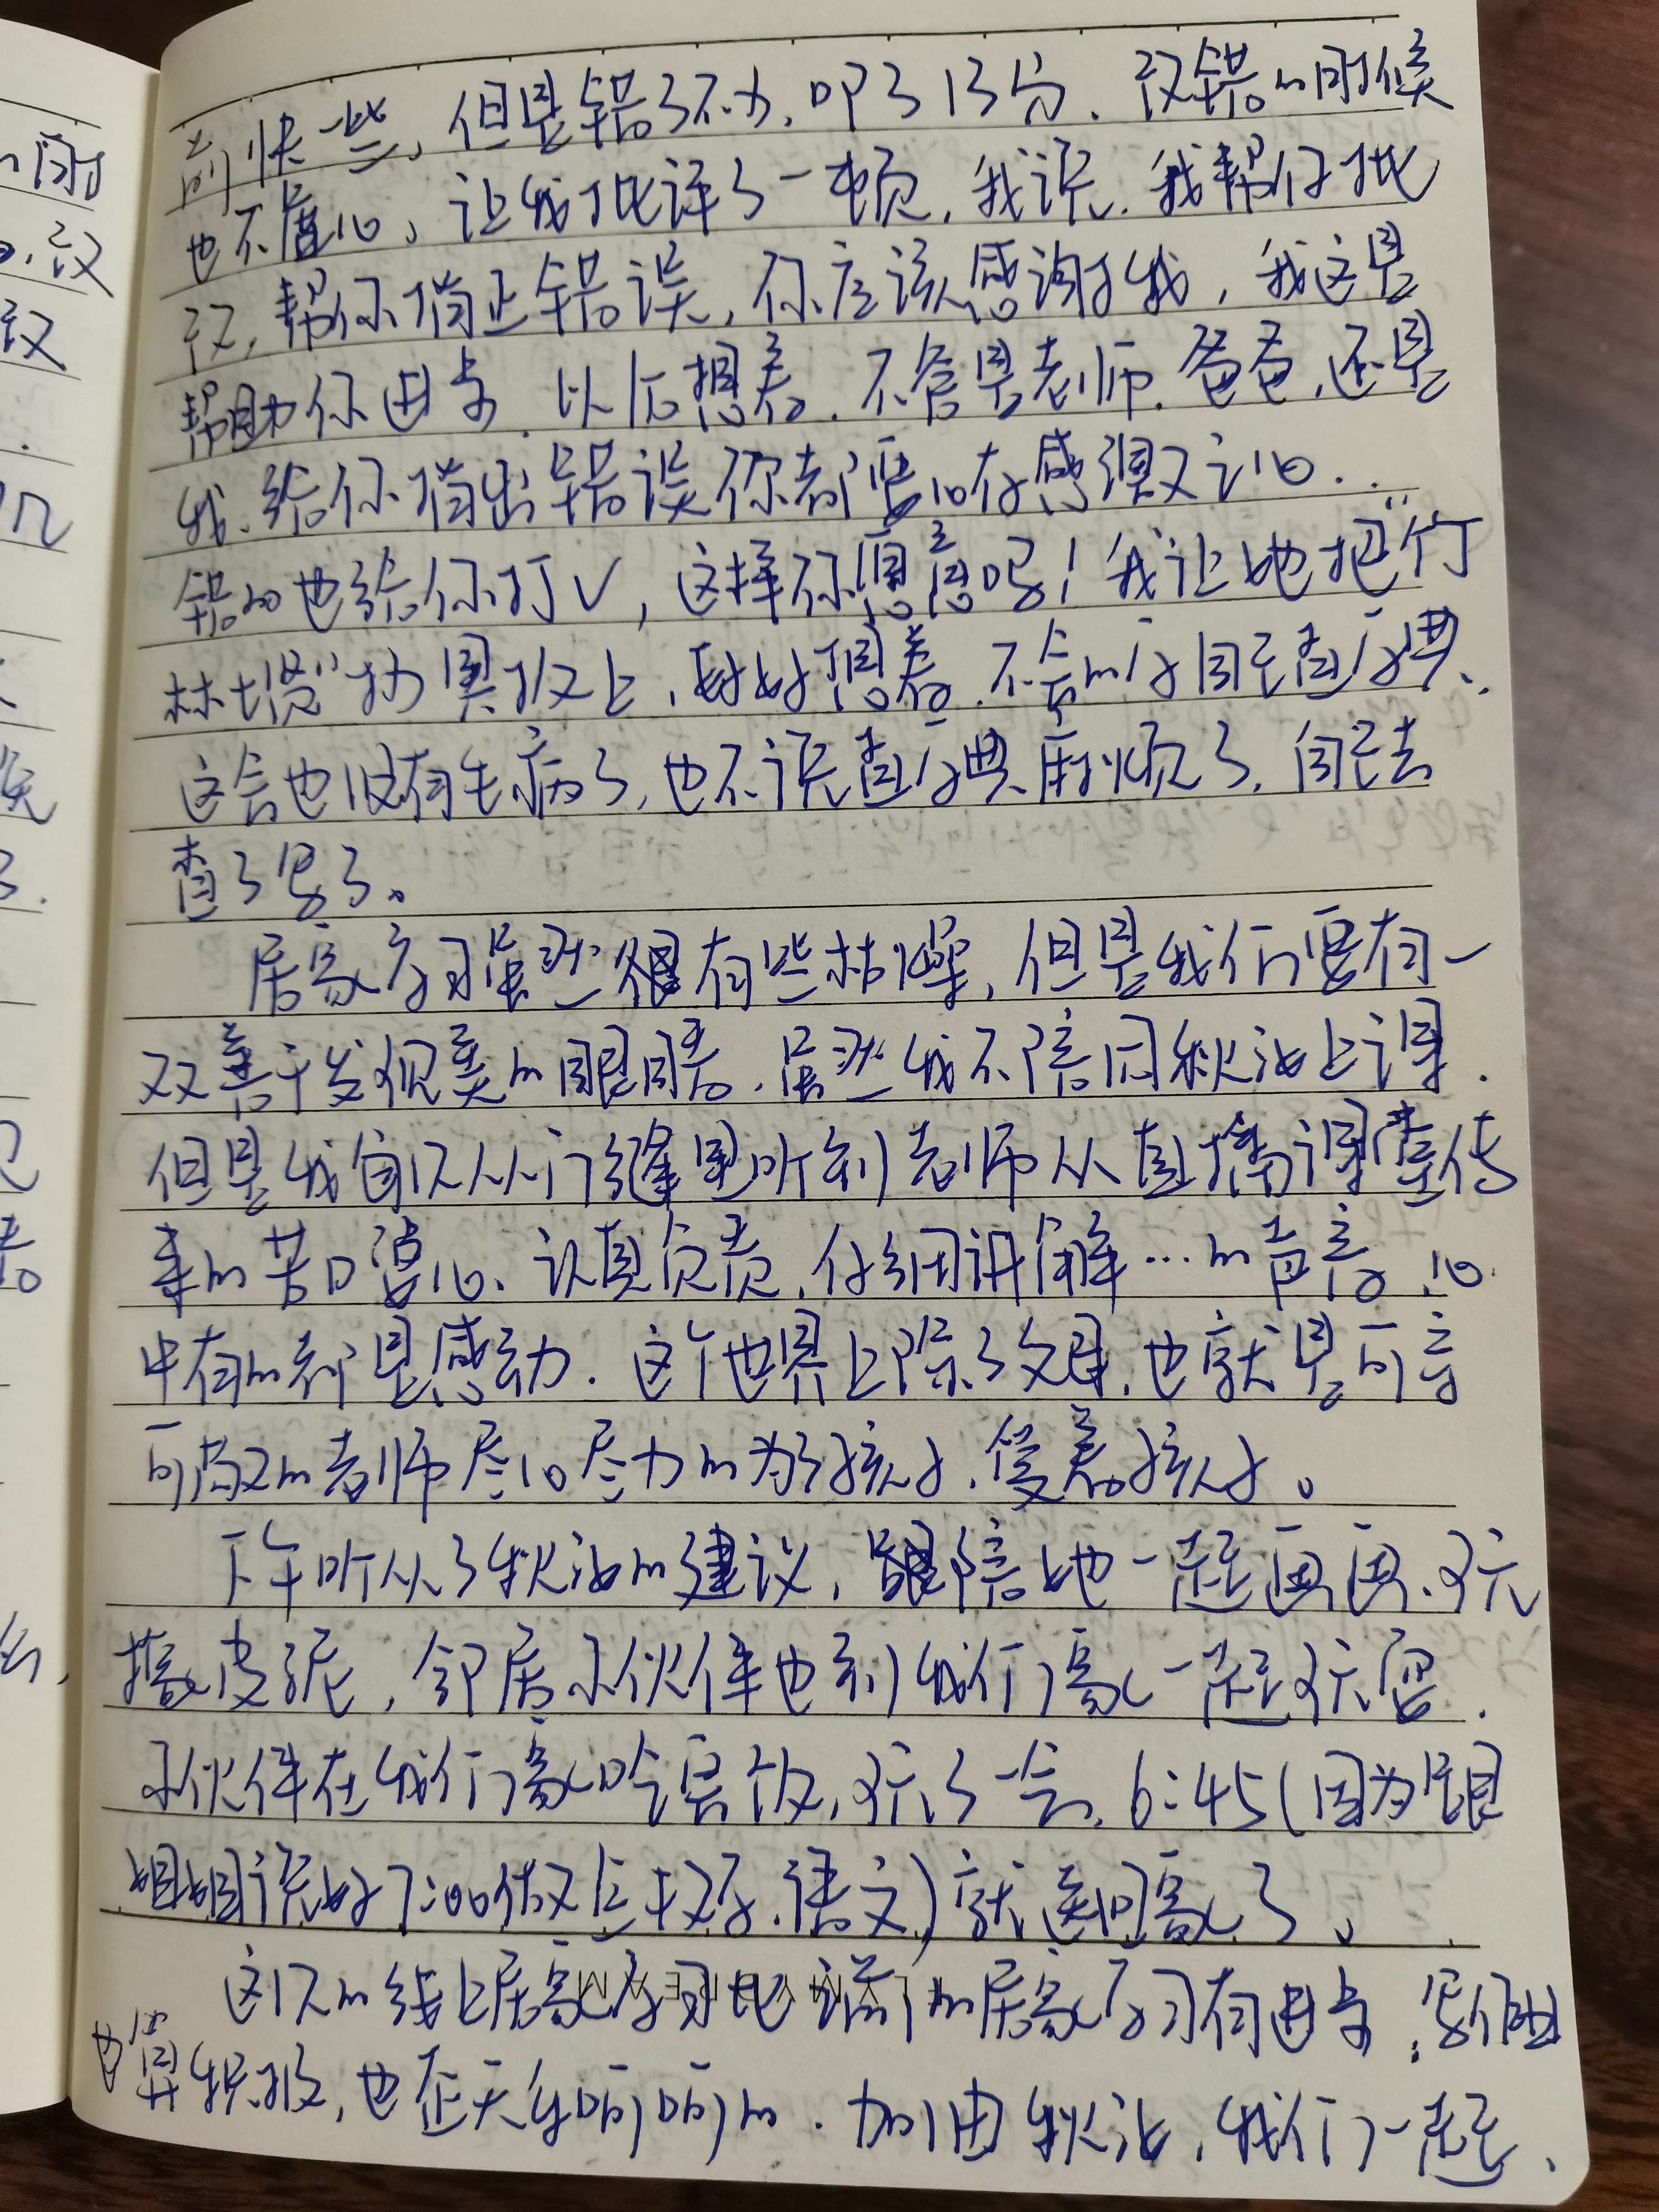 前快一些，但是错了不少，叩了13分，改错的时候
也不虚心，让我批评了一顿，我说，我帮你批
改，帮你指正错误，你应该感谢我，我这是
帮助你进步，以后想着，不管是老师，爸爸，还是
我，给你指出错误你都要心存感谢之心．．
错的也给你打√，这样你愿意吗！我让她把“竹
林烧”抄黑板上，好好想着，不会的字自己查字典，．
这会也没有生病了，也不说查字典麻烦了，自己去
查了写了。
居家学习虽然很有些枯燥，但是我们要有一
双善于发现美的眼睛．虽然我不陪同秋池上课，
但是我每次从门缝里听到老师从直播课堂传
来的苦口婆心、认真负责，仔细讲解…的声音，心
中有的都是感动．这个世界上除了父母，也就是可亲
可敬的老师尽心尽力的为了孩子，爱着孩子。
下午听从了秋池的建议，陪她一起画画、玩
橡皮泥，邻居小伙伴也到我们家一起玩耍．
小伙伴在我们家吃完饭，玩了一会，6:45（因为跟
姐姐说好7:00做数学、语文）就送回家了。
这次的线上居家学习比 的居家学习有进步，
也算积极，也整天乐呵呵的．加油秋池，我们一起、